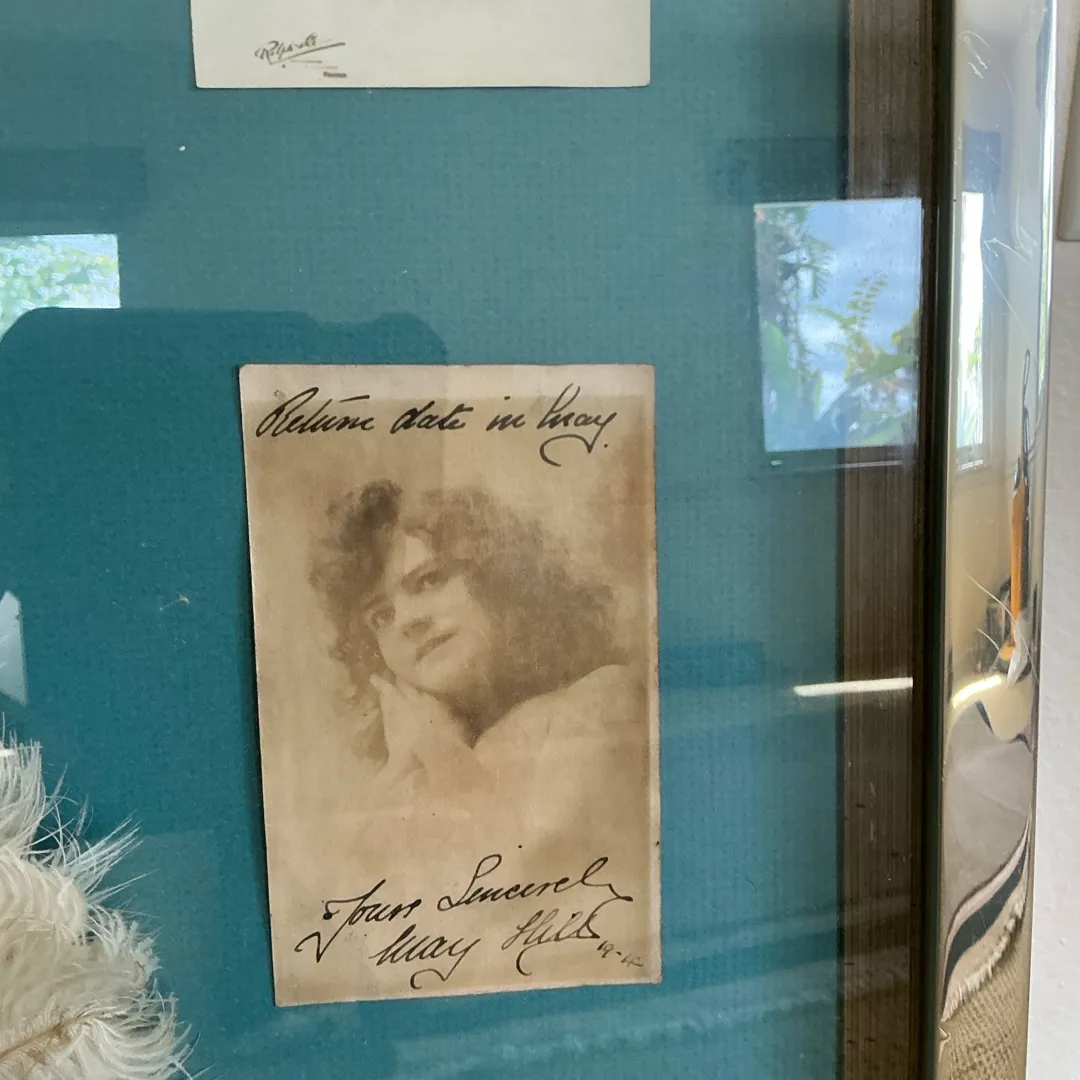 Return date in May.
Yours Sincerely
May Hill